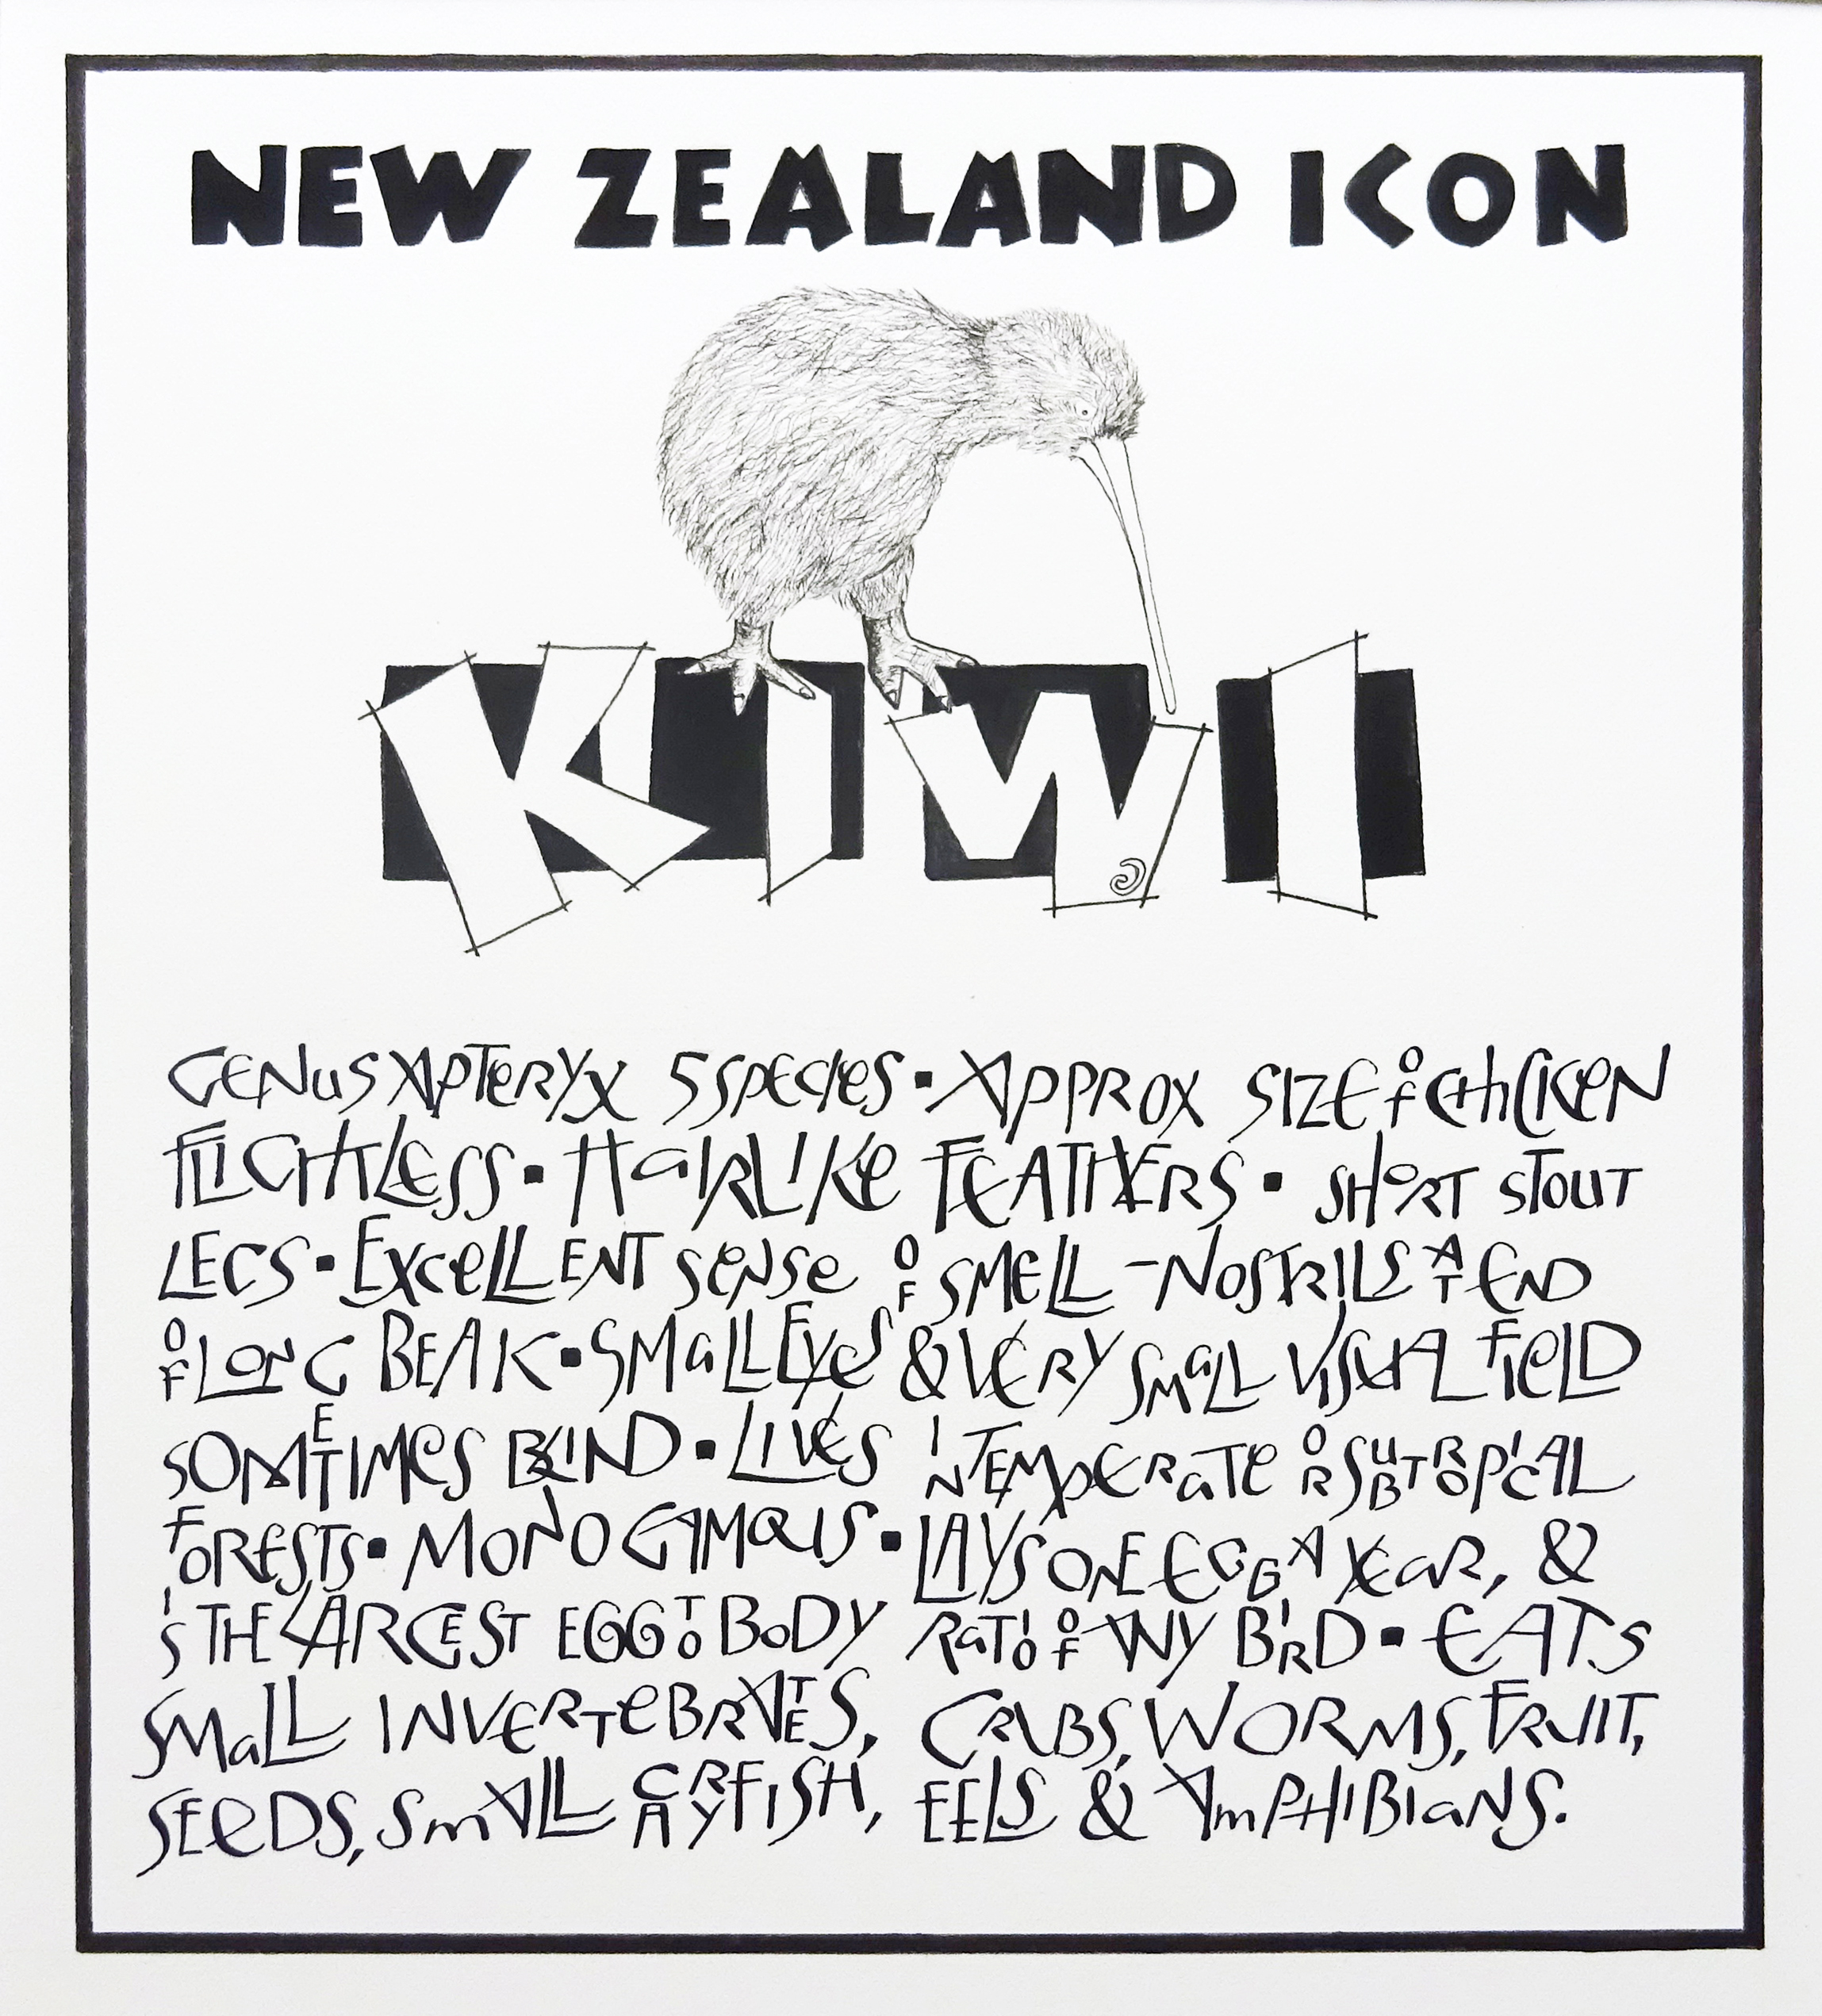 NEW ZEALAND ICON
KIWI
GENUS APTERYX 5 SPECIES ▪ APPROX SIZE OF CHICKEN
FLIGHTLESS ▪ HAIRLIKE FEATHERS ▪ SHORT STOUT
LEGS ▪ EXCELLENT SENSE OF SMELL – NOSTRILS AT END
OF LONG BEAK ▪ SMALL EYES & VERY SMALL VISUAL FIELD
SOMETIMES BLIND ▪ LIVES IN TEMPERATE OR SUBTROPICAL
FORESTS ▪ MONOGAMOUS ▪ LAYS ONE EGG A YEAR, &
IS THE LARGEST EGG TO BODY RATIO OF ANY BIRD ▪ EATS
SMALL INVERTEBRATES, CRABS, WORMS, FRUIT,
SEEDS, SMALL CRAYFISH, EELS & AMPHIBIANS.